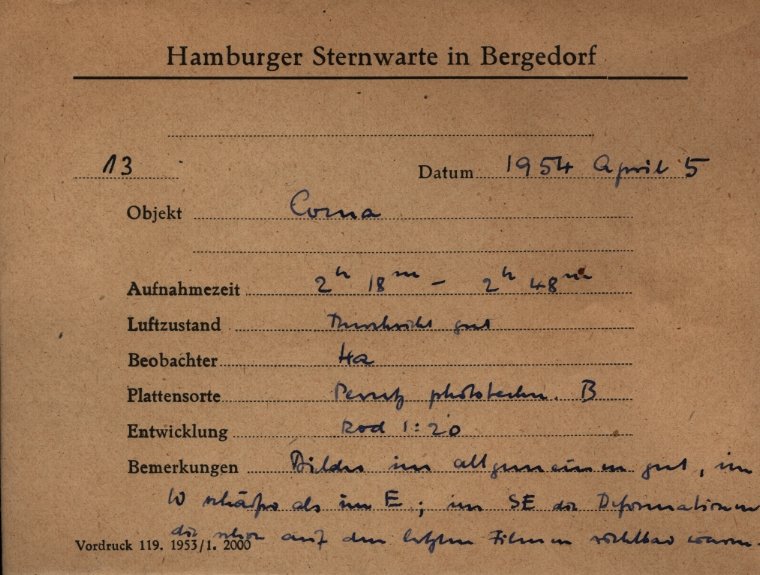 Hamburger Sternwarte in Bergedorf
13 Datum 1954 April 5
Objekt Coma
Aufnahmezeit 2h 18m – 2h 48m
Luftzustand Durchsicht gut
Beobachter Ha
Plattensorte Perutz phototechn. B
Entwicklung Rod 1:20
Bemerkungen Bilder im allgemeinen gut, im
W schärfer als im E; im SE die Deformationen
die schon auf den letzten Filmen sichtbar waren.
Vordruck 119. 1953/1. 2000